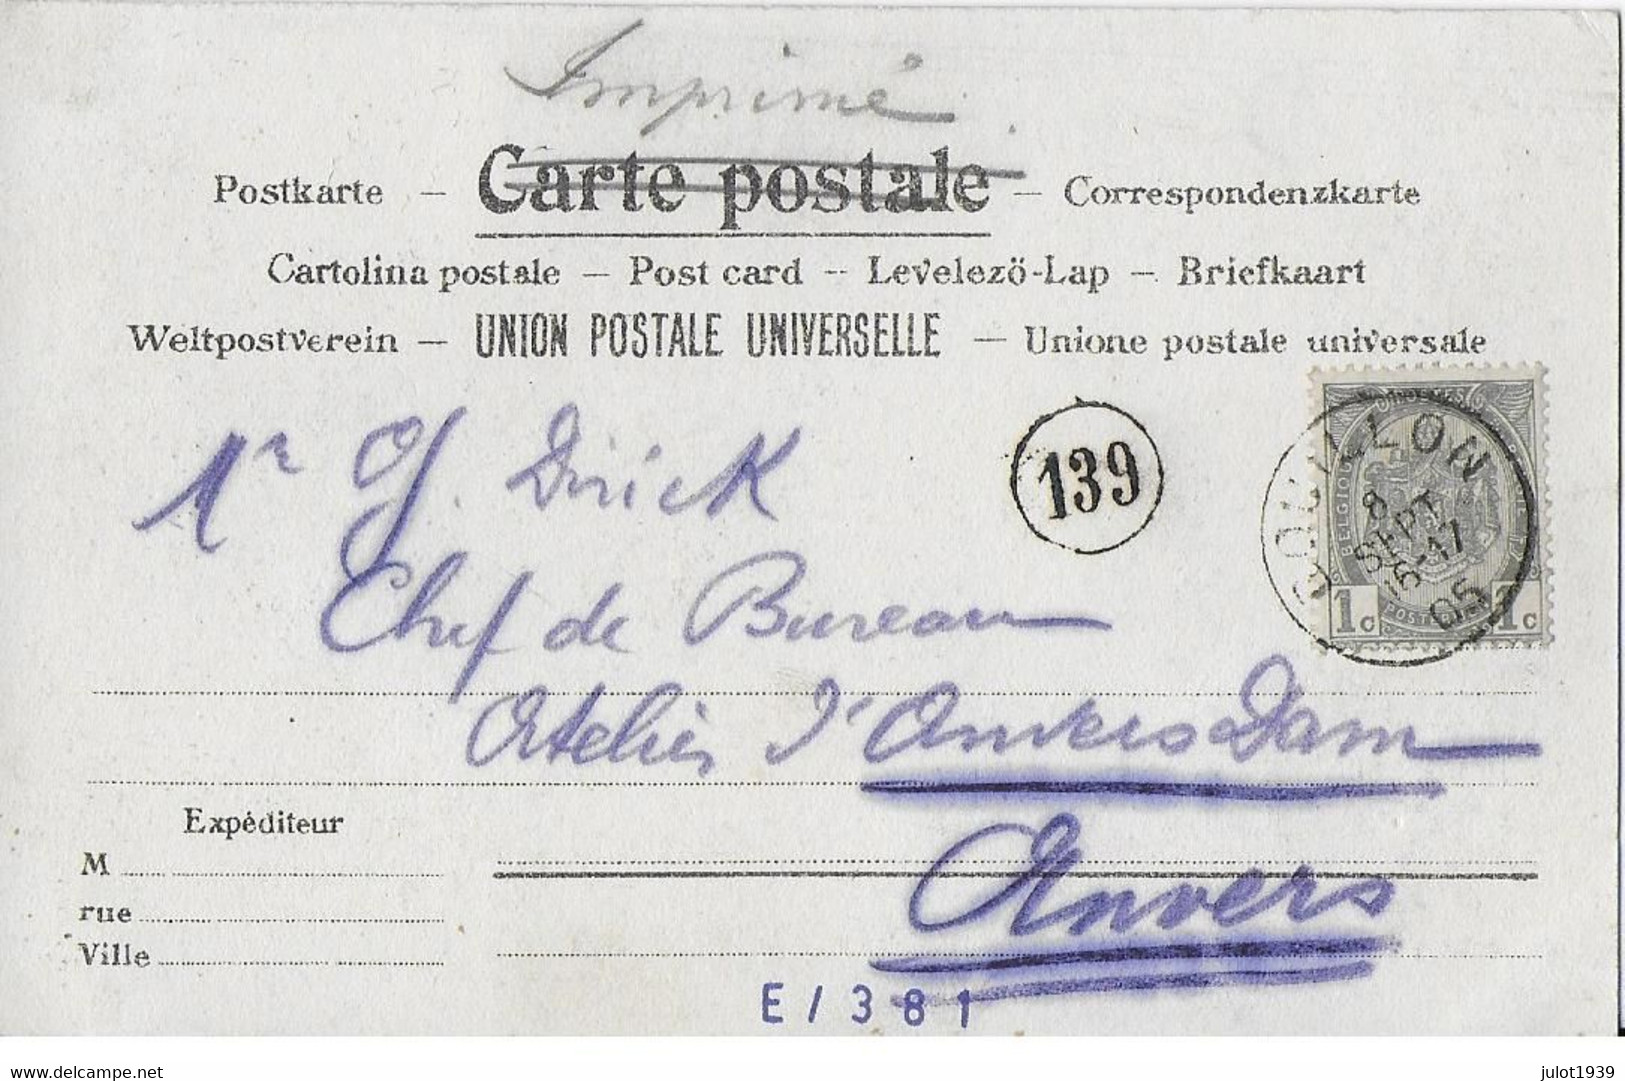 Imprimé
Postkarte — Carte postale — Correspondenzkarte
Cartolina postale — Post card — Levelezö-Lap — Briefkaart
Weltpostverein — UNION POSTALE UNIVERSELLE — Unione postale universale
Mr G. Dirick
139
BOUILLON
8 SEPT
05
BELGIQUE
1c
1c
Chef de Bureau
Atelier d'Anvers Dam
Anvers
Expéditeur
M
rue
Ville
E / 381
delcampe.net
julot1939